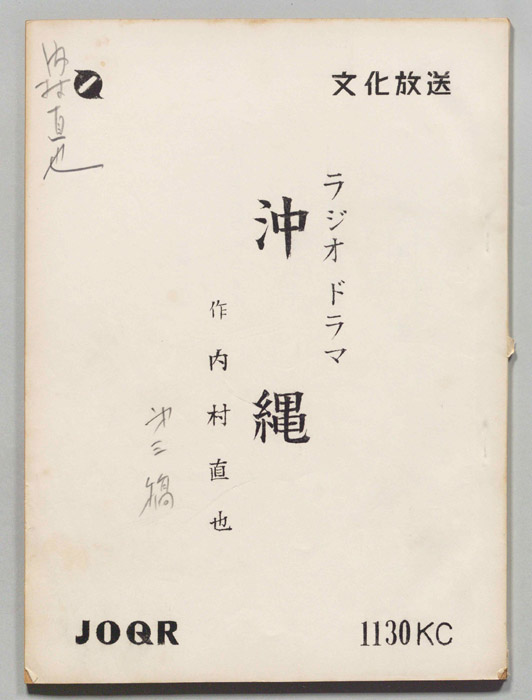 文化放送
ラジオドラマ
沖縄
作 内村直也
第三稿
内村直也
JOQR
1130KC